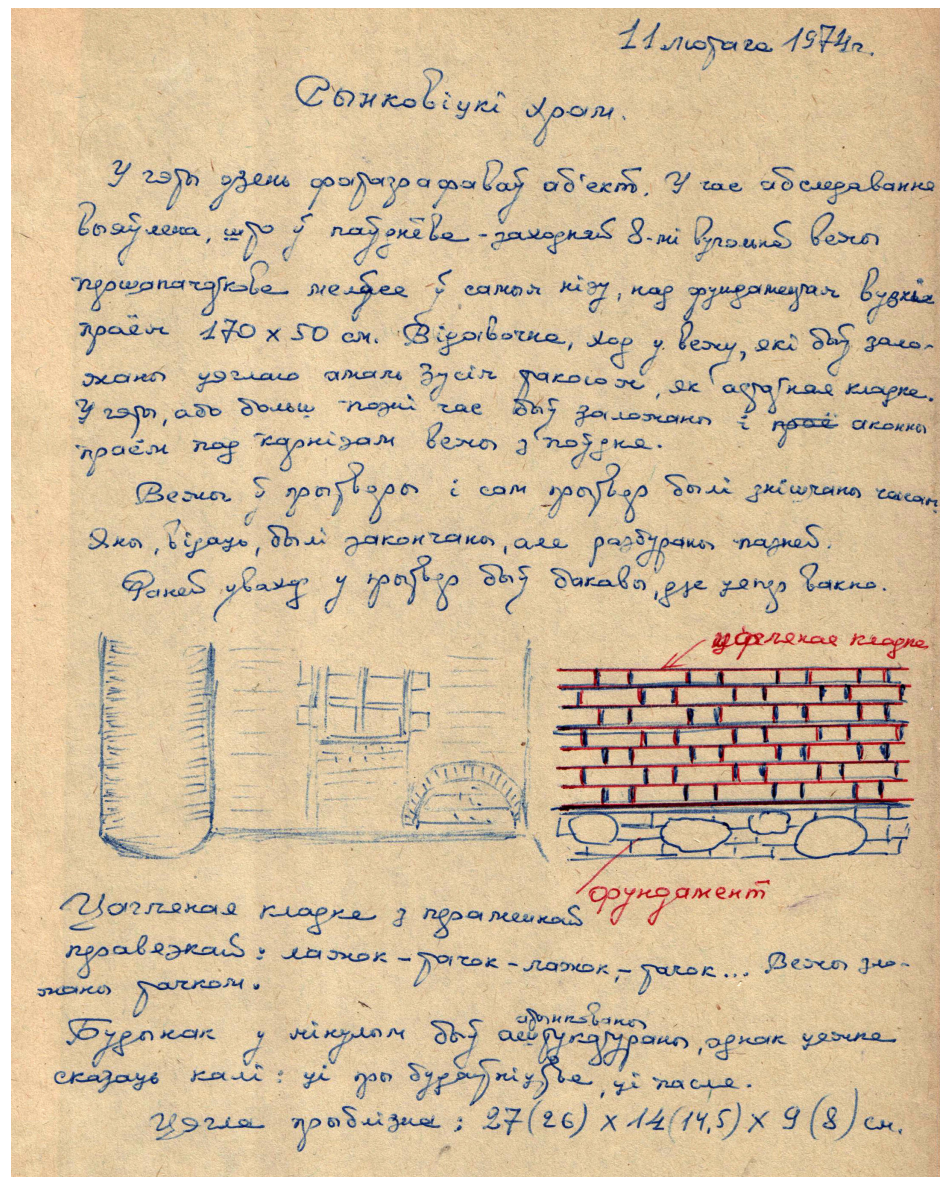 11 лютага 1974 г.
Сынковіцкі храм.
У гэты дзень фатаграфаваў аб'ект. У час абследавання
выяўлена, што ў паўднёва-заходняй 8-мі вугольнай вежы
першапачаткова меўся ў самым нізу, над фундаментам вузкі
праём 170 х 50 см. Відавочна, ход у вежу, які быў зало-
жаны цэглаю амаль зусім такою ж, як астатняя кладка.
У гэты, або больш позні час быў заложаны і праё аконны
праём пад карнізам вежы з поўдня.
Вежы ў прытворы і сам прытвор былі знішчаны часам.
Яны, відаць, былі закончаны, але разбураны пазней.
Раней уваход у прытвор быў бакавы, дзе цяпер вакно.
цагленая кладка
фундамент
Цагленая кладка з прамешкай
перавязкай: лажок - тачок - лажок, - тачок... Вежы зло-
жаны тачком.
атынкаваны
Будынак у мінулым быў аштукатураны, аднак цяжка
сказаць калі: ці пры будаўніцтве, ці пасля.
Цэгла прыблізна: 27(26) х 14(14,5) х 9(8) см.